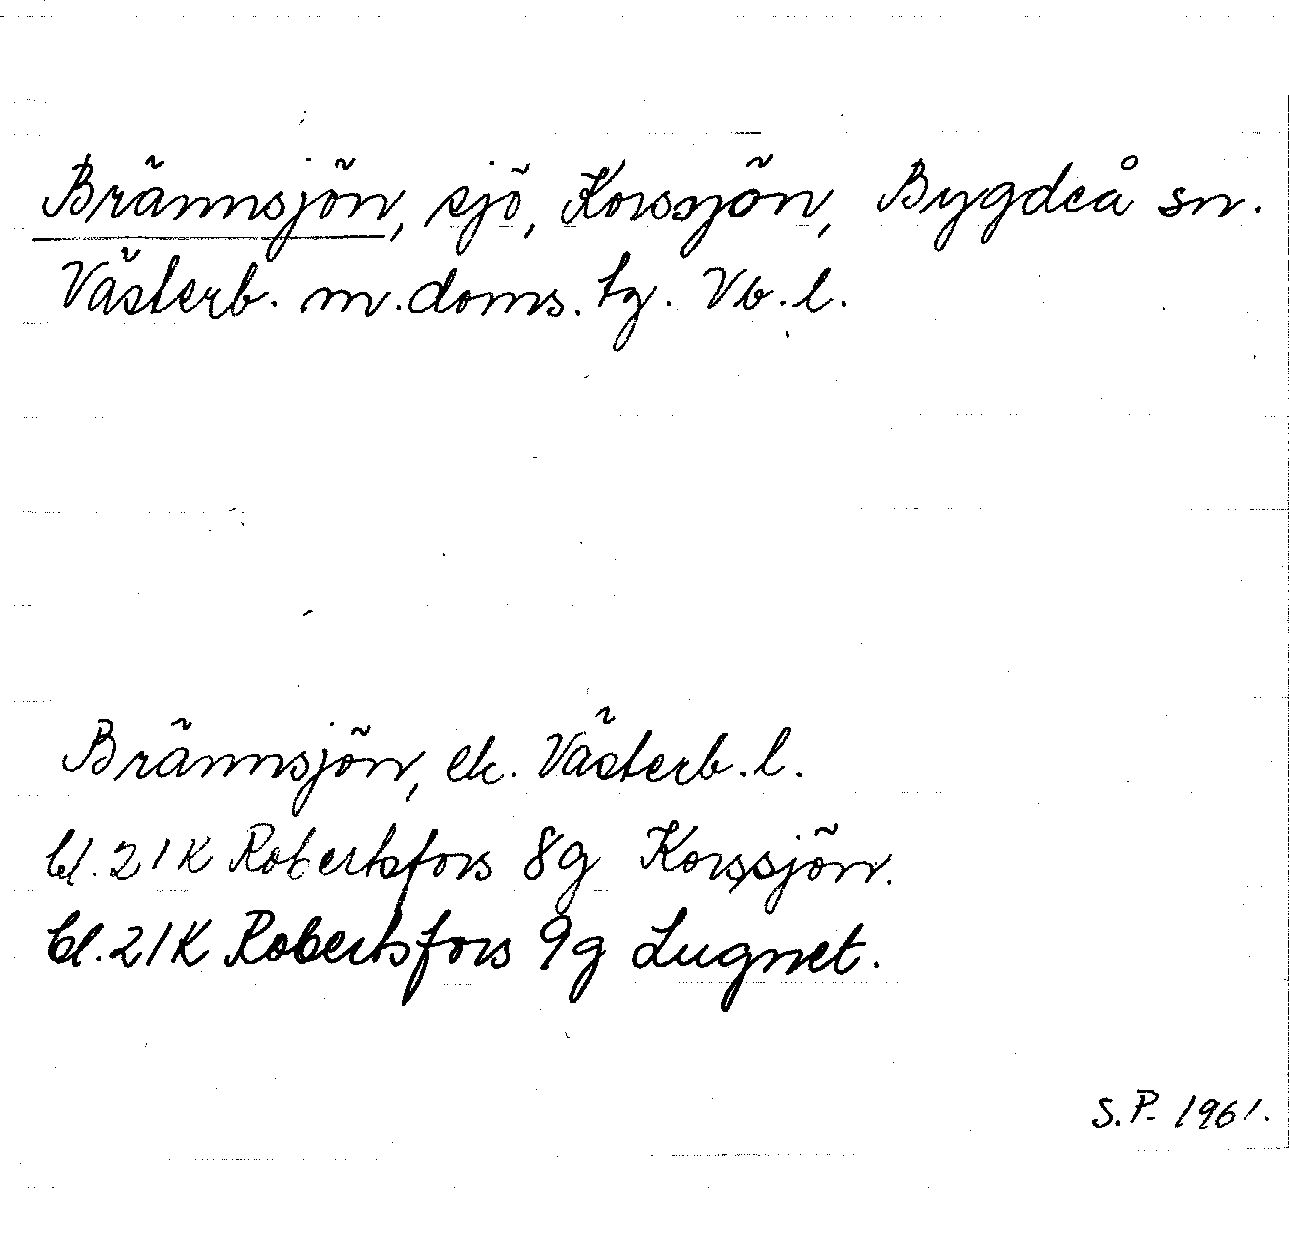 Brännsjön, sjö, Korssjön, Bygdeå sn.
Västerb. m. doms. tg. Vb. l.
Brännsjön, ek. Västerb. l.
bl. 21K Robertsfors 8g Korssjön.
bl. 21K Robertsfors 9g Lugnet.
S. P. 1961.